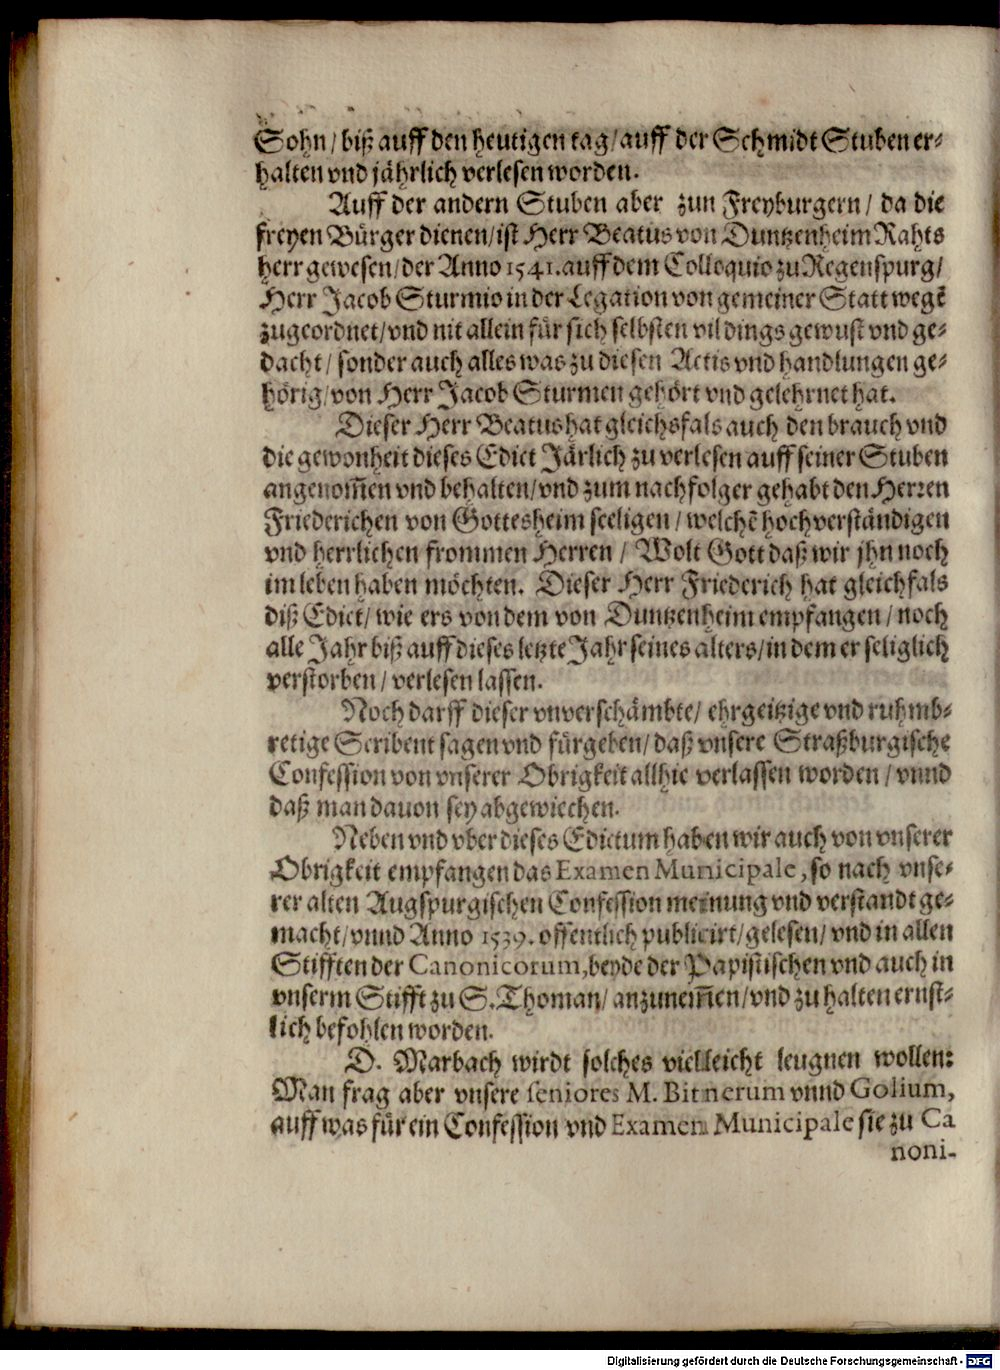 Sohn / biß auff den heutigen tag / auff der Schmidt Stuben er-
halten vnd jährlich verlesen worden.
Auff der andern Stuben aber zun Freyburgern / da die
freyen Bürger dienen / ist Herr Beatus von Duntzenheim Rahts
herr gewesen / der Anno 1541. auff dem Colloquio zu Regenspurg /
Herr Jacob Sturmio in der Legation von gemeiner Statt wegẽ
zugeordnet / vnd nit allein für sich selbsten vil dings gewust vnd ge-
dacht / sonder auch alles was zu diesen Actis vnd handlungen ge-
hörig / von Herr Jacob Sturmen gehört vnd gelehrnet hat.
Dieser Herr Beatus hat gleichsfals auch den brauch vnd
die gewonheit dieses Edict Järlich zu verlesen auff seiner Stuben
angenom̃en vnd behalten / vnd zum nachfolger gehabt den Herren
Friederichen von Gottesheim seeligen / welchẽ hochverständigen
vnd herrlichen frommen Herren / Wolt Gott daß wir jhn noch
im leben haben möchten. Dieser Herr Friederich hat gleichfals
diß Edict / wie ers von dem von Duntzenheim empfangen / noch
alle Jahr biß auff dieses letzte Jahr seines alters / in dem er seliglich
verstorben / verlesen lassen.
Noch darff dieser vnverschämbte / ehrgeitzige vnd ruhmb-
retige Scribent sagen vnd fürgeben / daß vnsere Straßburgische
Confession von vnserer Obrigkeit allhie verlassen worden / vnnd
daß man dauon sey abgewiechen.
Neben vnd vber dieses Edictum haben wir auch von vnserer
Obrigkeit empfangen das Examen Municipale, so nach vnse-
rer alten Augspurgischen Confession meinung vnd verstandt ge-
macht / vnnd Anno 1539. offentlich publicirt / gelesen / vnd in allen
Stifften der Canonicorum, beyde der Papistischen vnd auch in
vnserm Stifft zu S. Thoman / anzunem̃en / vnd zu halten ernst-
lich befohlen worden.
D. Marbach wirdt solches vielleicht leugnen wollen:
Man frag aber vnsere seniores M. Bitnerum vnnd Golium,
auff was für ein Confession vnd Examen Municipale sie zu Ca
noni-
Digitalisierung gefördert durch die Deutsche Forschungsgemeinschaft - DFG